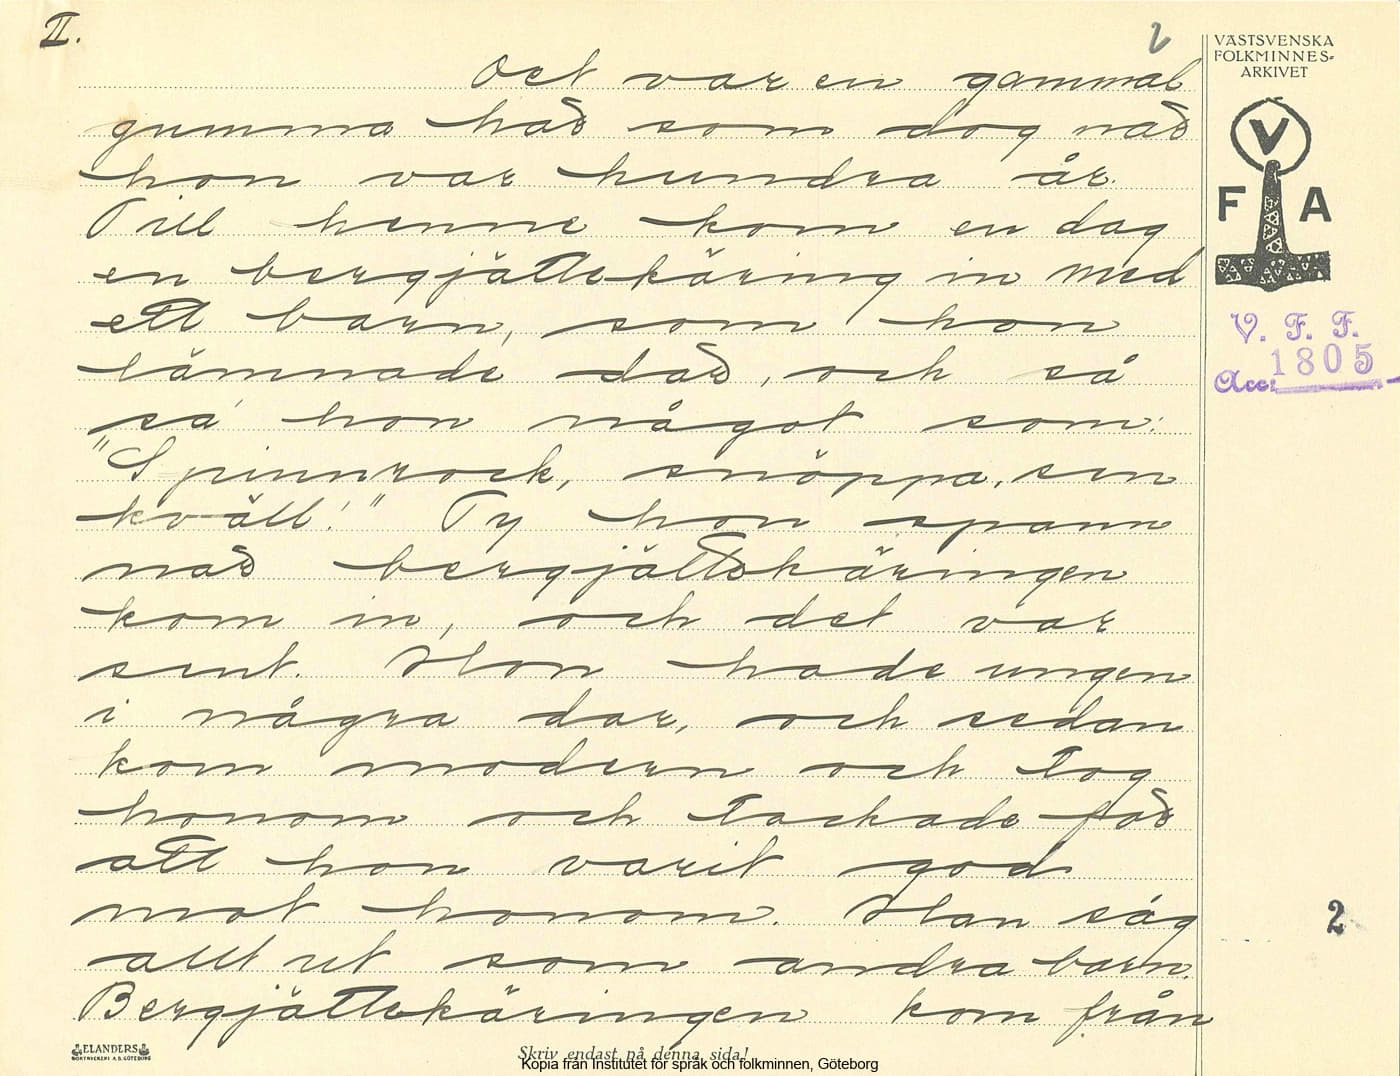 II.
2
Det var en gammal
gumma här som dog när
hon var hundra år.
Till henne kom en dag
en bergjättekäring in med
ett barn, som hon
lämnade där, och så
sa' hon något som:
"Spinnrock, snöppa, sen
kväll!" Ty hon spann
när bergjättekäringen
kom in, och det var
sent. Hon hade ungen
i några dar, och sedan
kom modern och tog
honom och tackade för
att hon varit god
mot honom. Han såg
allt ut som andra barn.
Bergjättekäringen kom från
VÄSTSVENSKA
FOLKMINNES-
ARKIVET
V
F A
V. F. F.
Acc: 1805
2
ELANDERS
BOKTRYCKERI A.B. GÖTEBORG
Skriv endast på denna sida!
Kopia från Institutet för språk och folkminnen, Göteborg